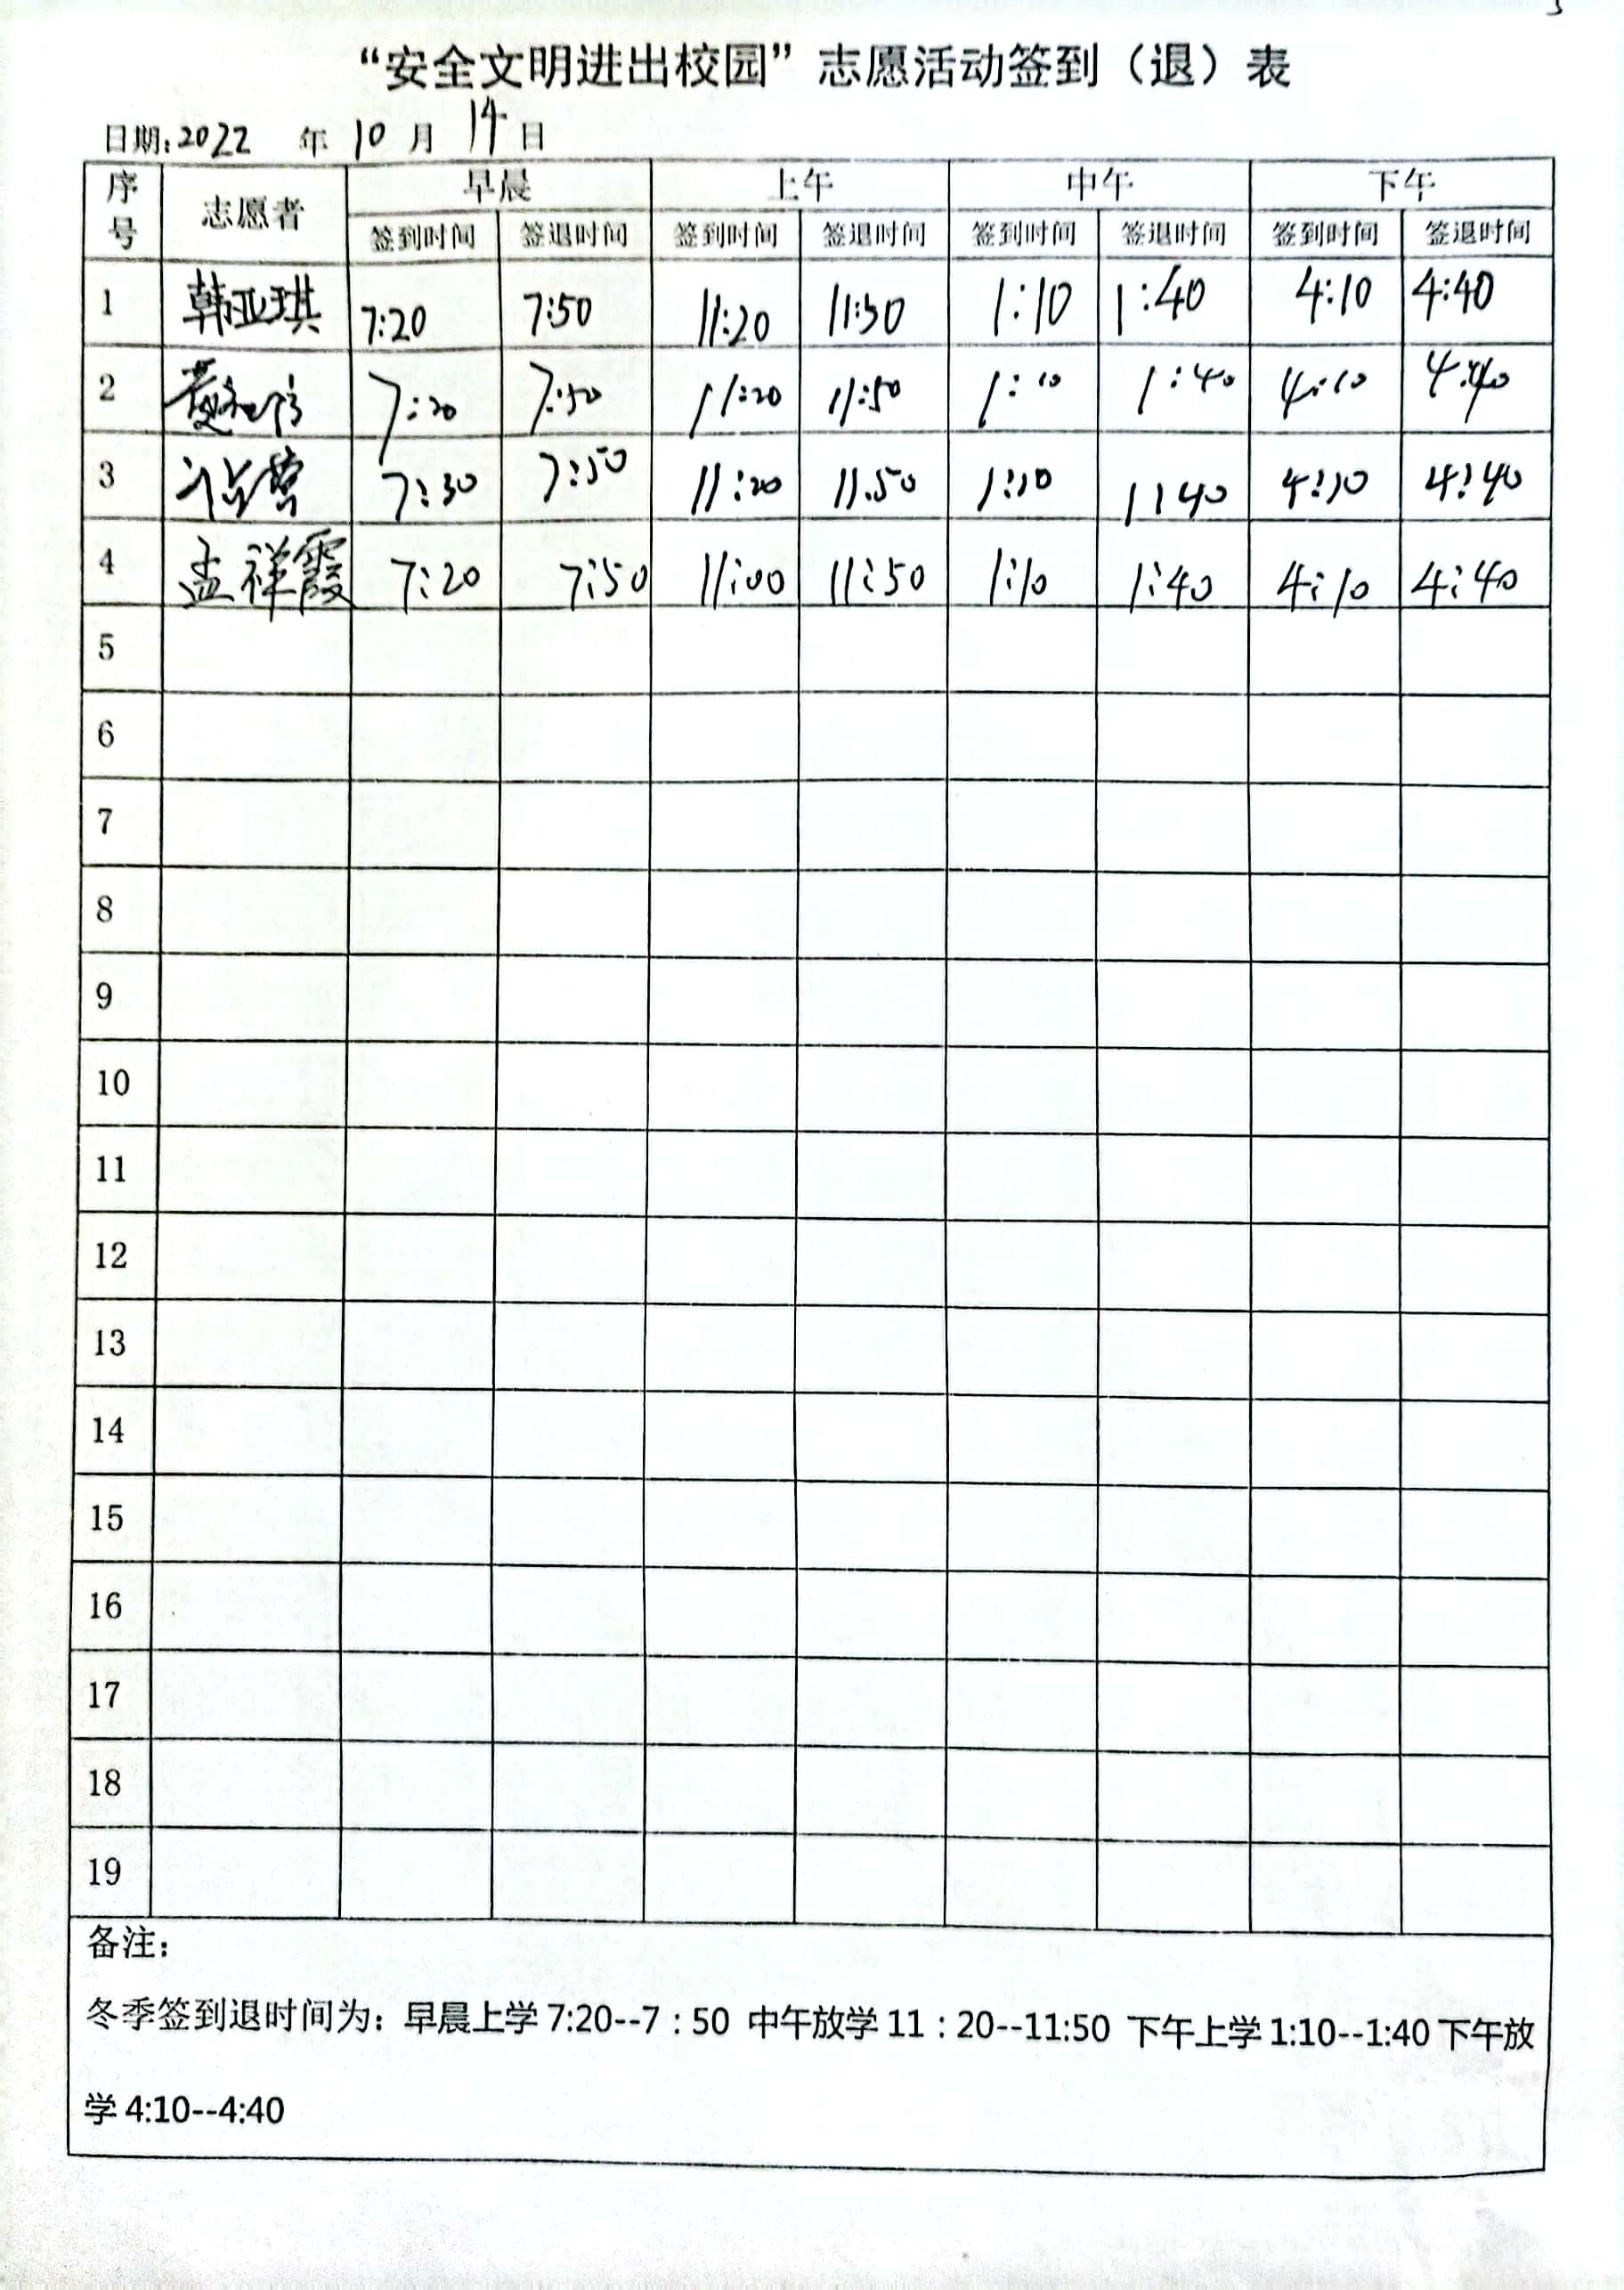 “安全文明进出校园”志愿活动签到（退）表
日期:2022 年 10 月 14 日
序号 志愿者 早晨 上午 中午 下午
签到时间 签退时间 签到时间 签退时间 签到时间 签退时间 签到时间 签退时间
1 韩亚琪 7:20 7:50 11:20 11:50 1:10 1:40 4:10 4:40
2 7:20 7:50 11:20 11:50 1:10 1:40 4:10 4:40
3 7:30 7:50 11:20 11.50 1:10 1:40 4:10 4:40
4 孟祥霞 7:20 7:50 11:00 11:50 1:10 1:40 4:10 4:40
5
6
7
8
9
10
11
12
13
14
15
16
17
18
19
备注：
冬季签到退时间为：早晨上学 7:20--7：50 中午放学 11：20--11:50 下午上学 1:10--1:40 下午放
学 4:10--4:40